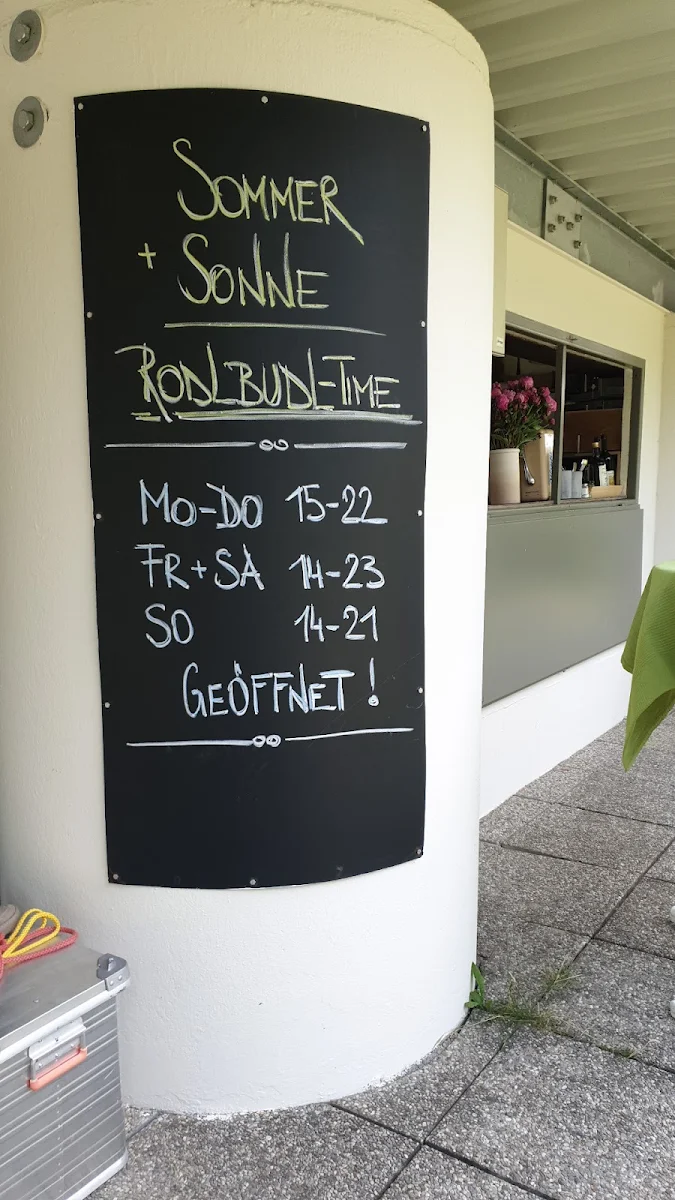 SOMMER
+ SONNE
RODLBUDL-TIME
MO-DO 15-22
FR+SA 14-23
SO 14-21
GEÖFFNET!